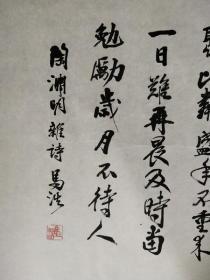 聚比鄰盛年不重来
一日難再晨及時當
勉勵歲月不待人
陶淵明雜詩馬